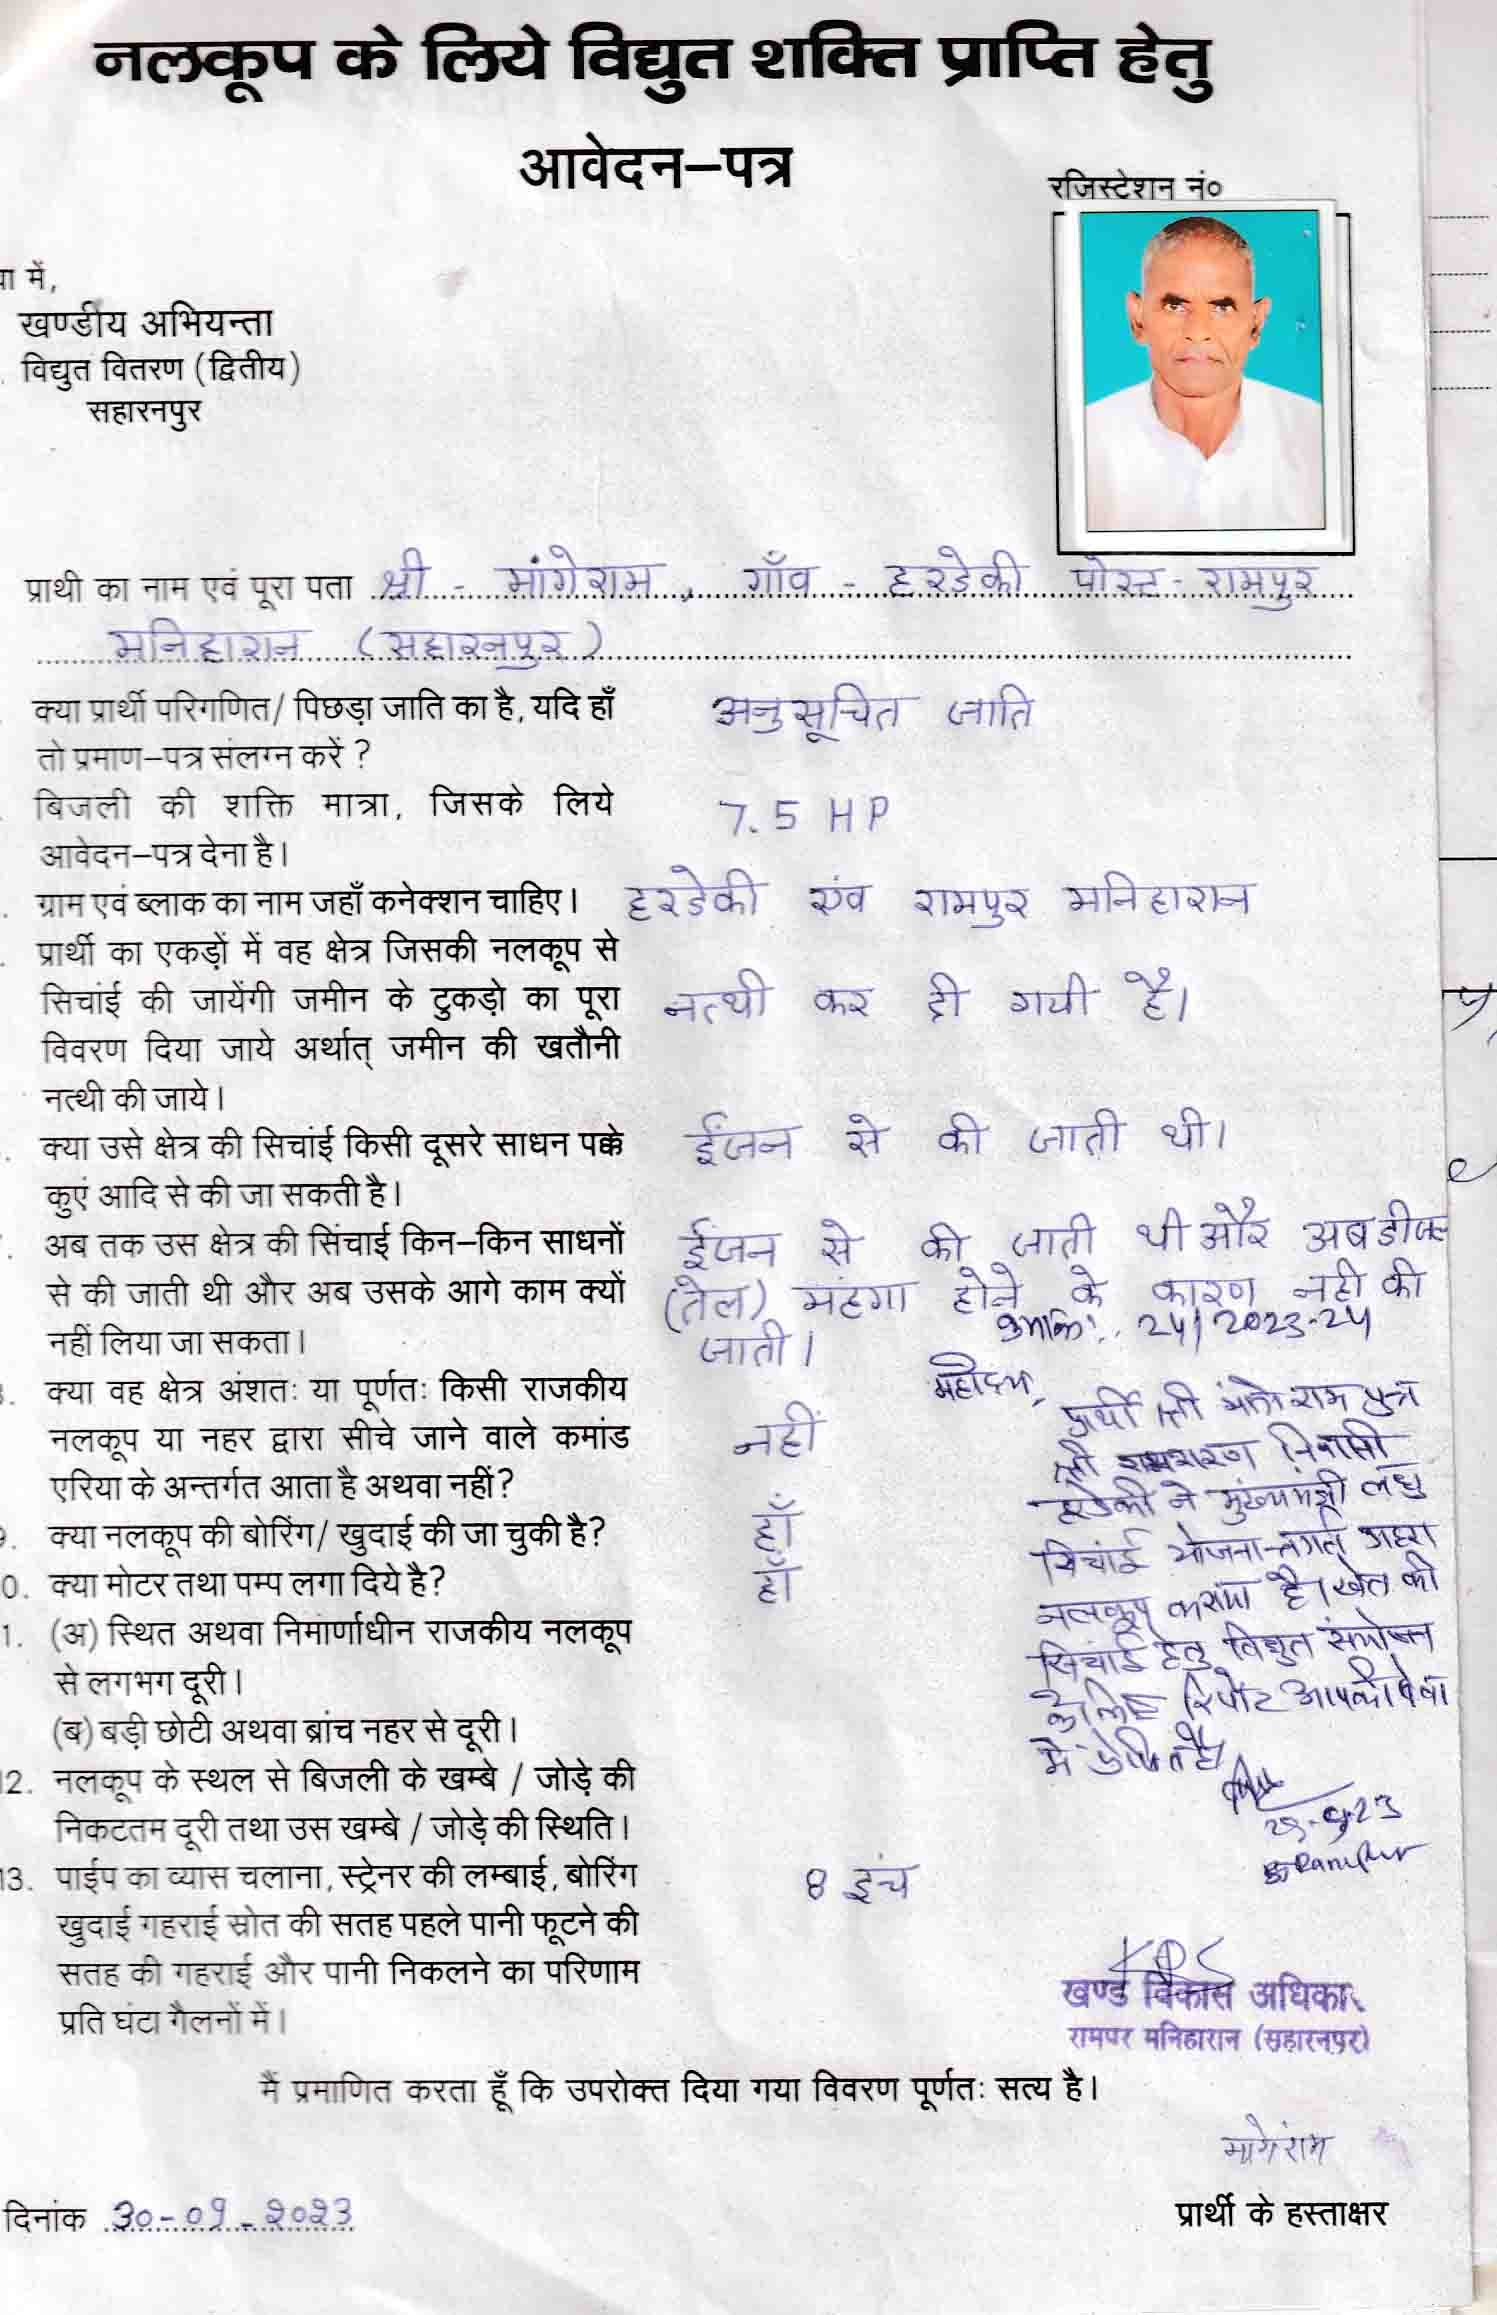 नलकूप के लिये विद्युत शक्ति प्राप्ति हेतु
आवेदन–पत्र
रजिस्टेशन नं०
वा में,
खण्डीय अभियन्ता
विद्युत वितरण (द्वितीय)
सहारनपुर
प्राथी का नाम एवं पूरा पता श्री - मांगेराम, गाँव - हरडेकी पोस्ट - रामपुर
मनिहारान (सहारनपुर)
क्या प्रार्थी परिगणित/ पिछड़ा जाति का है, यदि हाँ अनुसूचित जाति
तो प्रमाण–पत्र संलग्न करें ?
बिजली की शक्ति मात्रा, जिसके लिये 7.5 HP
आवेदन–पत्र देना है।
ग्राम एवं ब्लाक का नाम जहाँ कनेक्शन चाहिए। हरडेकी एंव रामपुर मनिहारान
प्रार्थी का एकड़ों में वह क्षेत्र जिसकी नलकूप से
सिचांई की जायेंगी जमीन के टुकड़ो का पूरा नत्थी कर दी गयी है।
विवरण दिया जाये अर्थात् जमीन की खतौनी
नत्थी की जाये।
क्या उसे क्षेत्र की सिचांई किसी दूसरे साधन पक्के ईंजन से की जाती थी।
कुएं आदि से की जा सकती है।
अब तक उस क्षेत्र की सिंचाई किन–किन साधनों ईंजन से की जाती थी और अब डीजल
से की जाती थी और अब उसके आगे काम क्यों (तेल) मंहगा होने के कारण नही की
नहीं लिया जा सकता। जाती।
24/2023-24
महोदय,
क्या वह क्षेत्र अंशतः या पूर्णतः किसी राजकीय
नलकूप या नहर द्वारा सीचे जाने वाले कमांड नहीं
एरिया के अन्तर्गत आता है अथवा नहीं?
प्रार्थी श्री मांगेराम पुत्र
श्री रामशरण निवासी
हरडेकी ने मुख्यमंत्री लघु
सिचांई योजनान्तर्गत गहरा
नलकूप कराया है। खेत की
सिंचाई हेतु विद्युत संयोजन
के लिए रिपोर्ट आपकी सेवा
में प्रेषित है।
29-9-23
Rampur
9. क्या नलकूप की बोरिंग/ खुदाई की जा चुकी है? हाँ
0. क्या मोटर तथा पम्प लगा दिये है? हाँ
1. (अ) स्थित अथवा निमार्णाधीन राजकीय नलकूप
से लगभग दूरी।
(ब) बड़ी छोटी अथवा ब्रांच नहर से दूरी।
12. नलकूप के स्थल से बिजली के खम्बे / जोड़े की
निकटतम दूरी तथा उस खम्बे / जोड़े की स्थिति।
13. पाईप का व्यास चलाना, स्ट्रेनर की लम्बाई, बोरिंग 8 इंच
खुदाई गहराई स्रोत की सतह पहले पानी फूटने की
सतह की गहराई और पानी निकलने का परिणाम
प्रति घंटा गैलनों में।
खण्ड विकास अधिकार
रामपर मनिहारान (सहारनपुर)
मैं प्रमाणित करता हूँ कि उपरोक्त दिया गया विवरण पूर्णतः सत्य है।
मांगेराम
दिनांक 30-09-2023
प्रार्थी के हस्ताक्षर